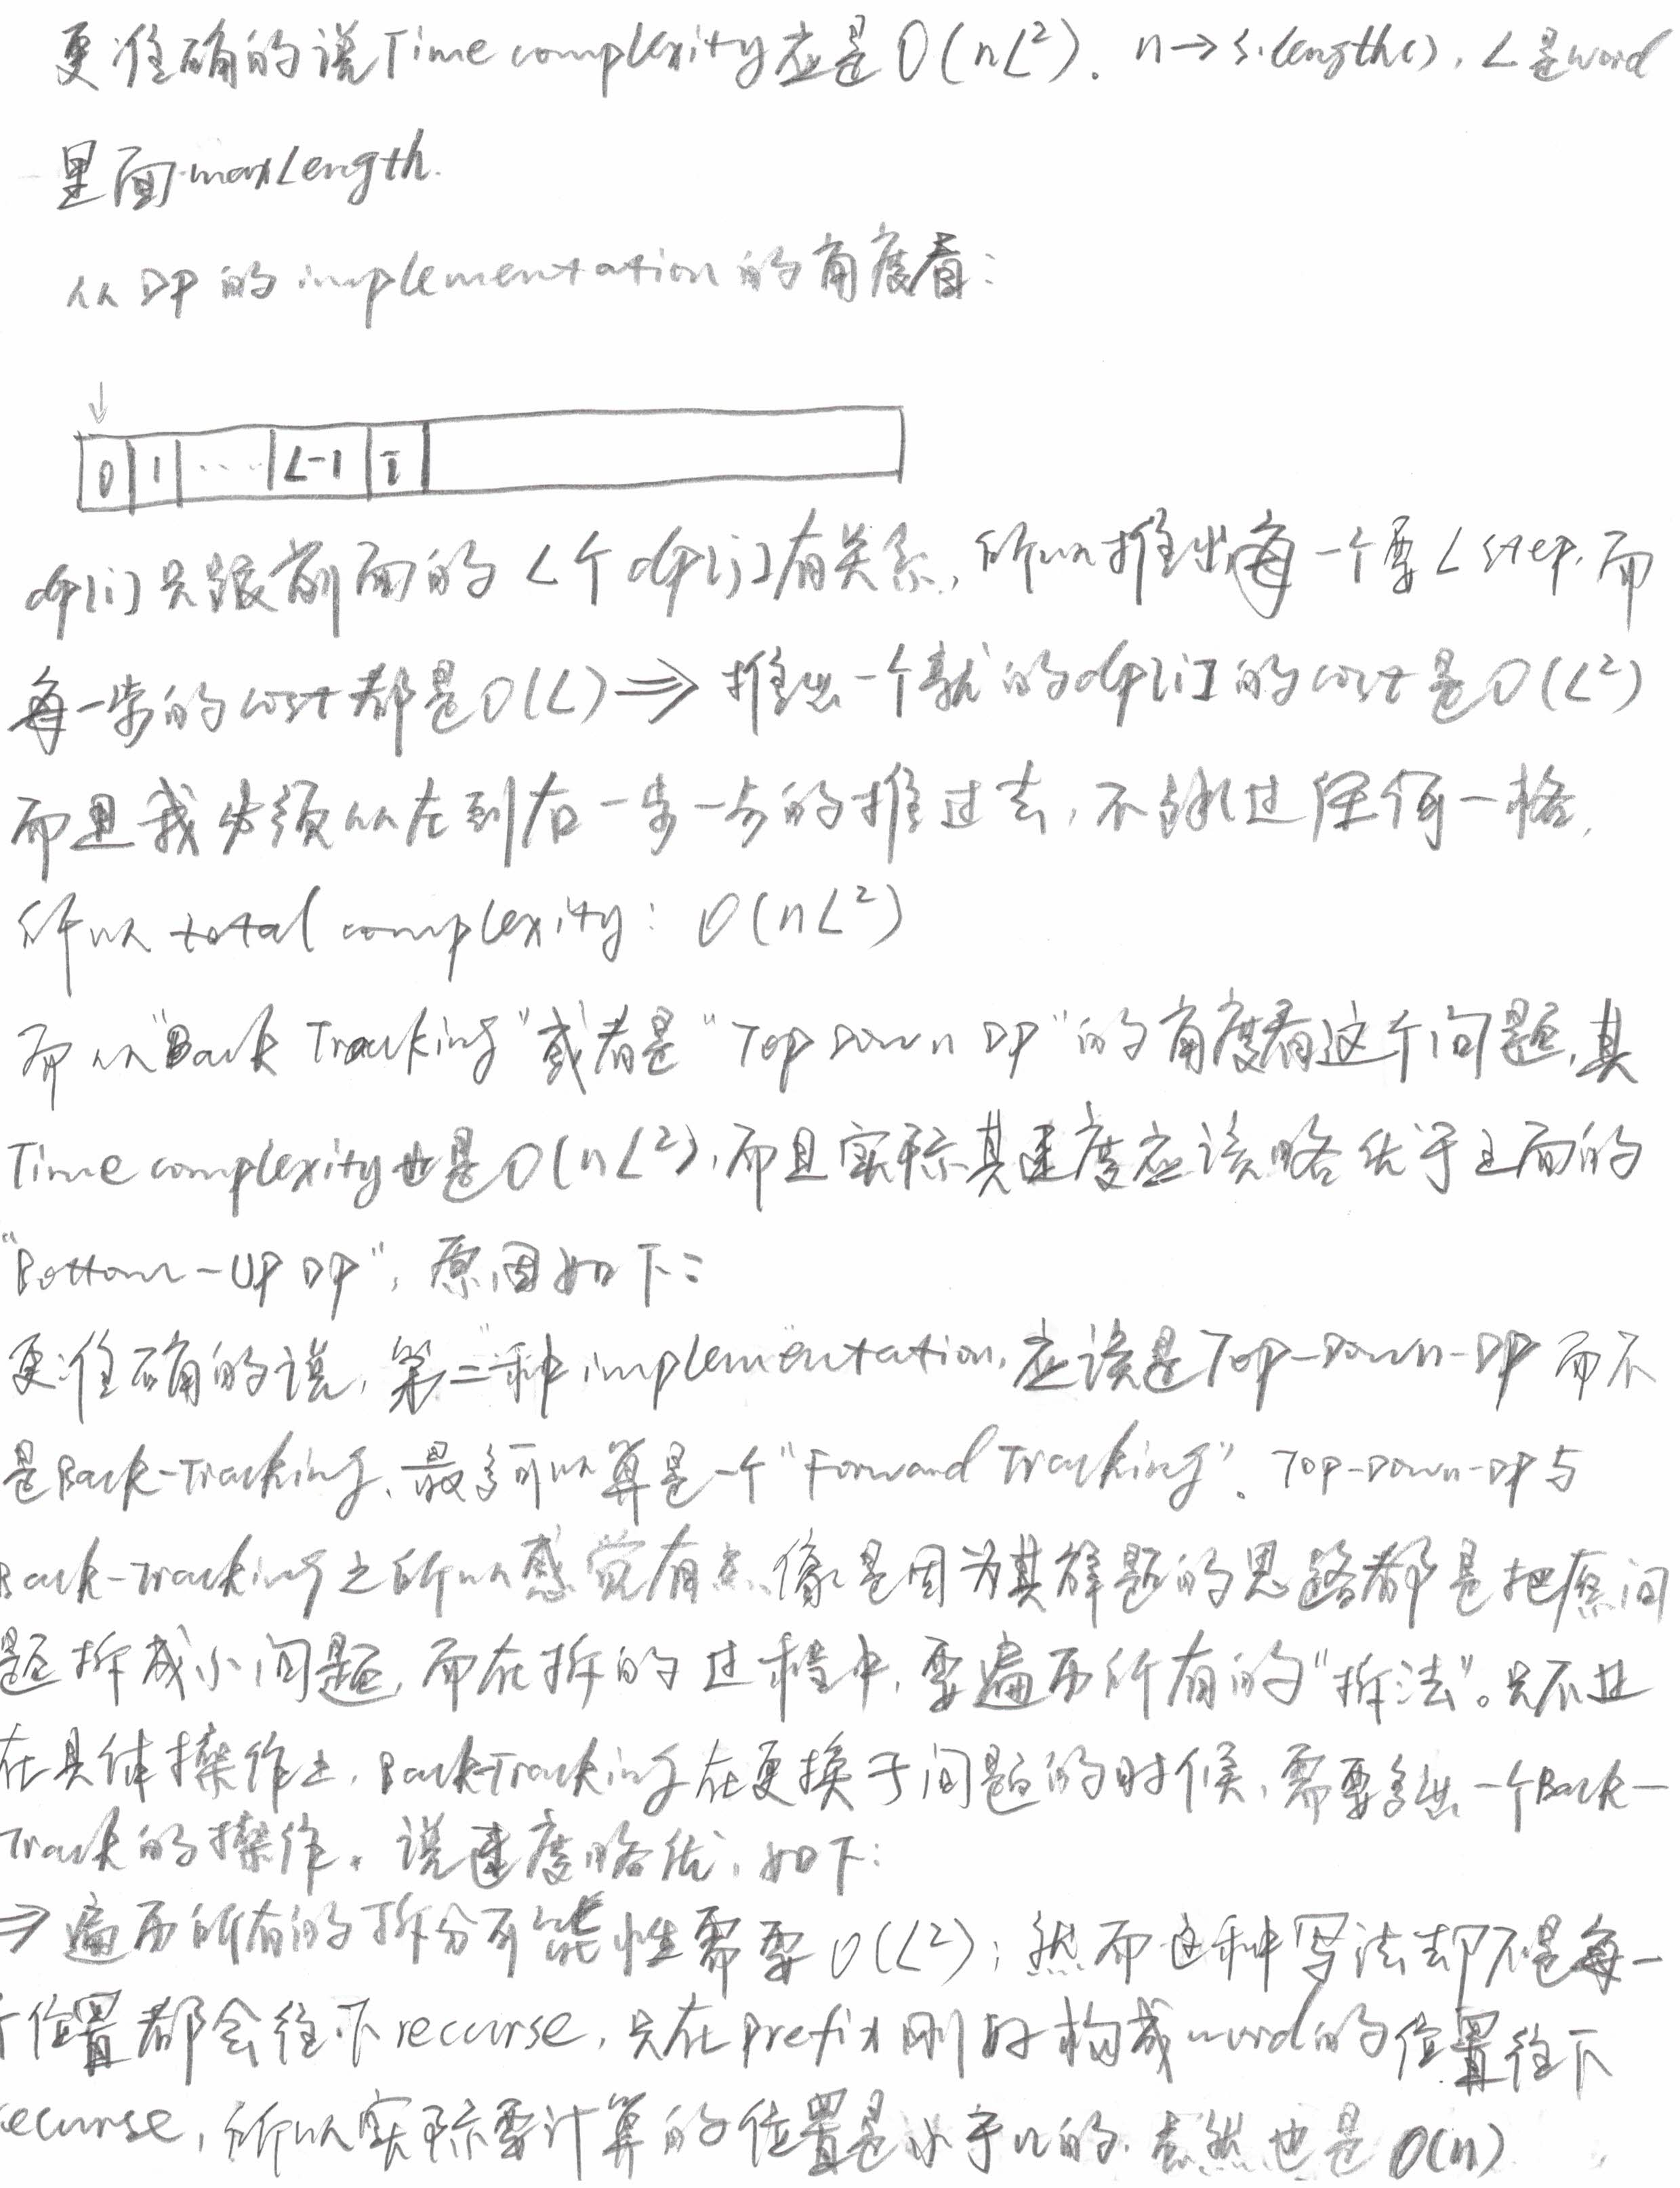 更准确的说Time complexity应是O(nL²). n→s.length(), L是word
里面maxLength.
从DP的implementation的角度看:
0 1 ···· L-1 i
dp[i]只跟前面的L个dp[j]有关系, 所以推出每一个要L step, 而
每一步的cost都是O(L) ⇒ 推出一个新的dp[i]的cost是O(L²)
而且我必须从左到右一步一步的推过去, 不跳过任何一格,
所以total complexity: O(nL²)
而从"Back Tracking"或者是"Top Down DP"的角度看这个问题, 其
Time complexity也是O(nL²), 而且实际其速度应该略优于上面的
"Bottom-UP DP", 原因如下:
更准确的说, 第二种implementation, 应该是Top-Down-DP而不
是Back-Tracking, 最多可以算是一个"Forward Tracking". Top-Down-DP与
Back-Tracking之所以感觉有点像是因为其解题的思路都是把原问
题拆成小问题, 而在拆的过程中, 要遍历所有的"拆法"。只不过
在具体操作上, Back-Tracking在更换子问题的时候, 需要多出一个Back-
Track的操作。说速度略优, 如下:
⇒ 遍历所有的拆分可能性需要O(L²); 然而这种写法却不是每一
个位置都会往下recurse, 只在prefix刚好构成word的位置往下
recurse, 所以实际要计算的位置是小于n的. 当然也是O(n)